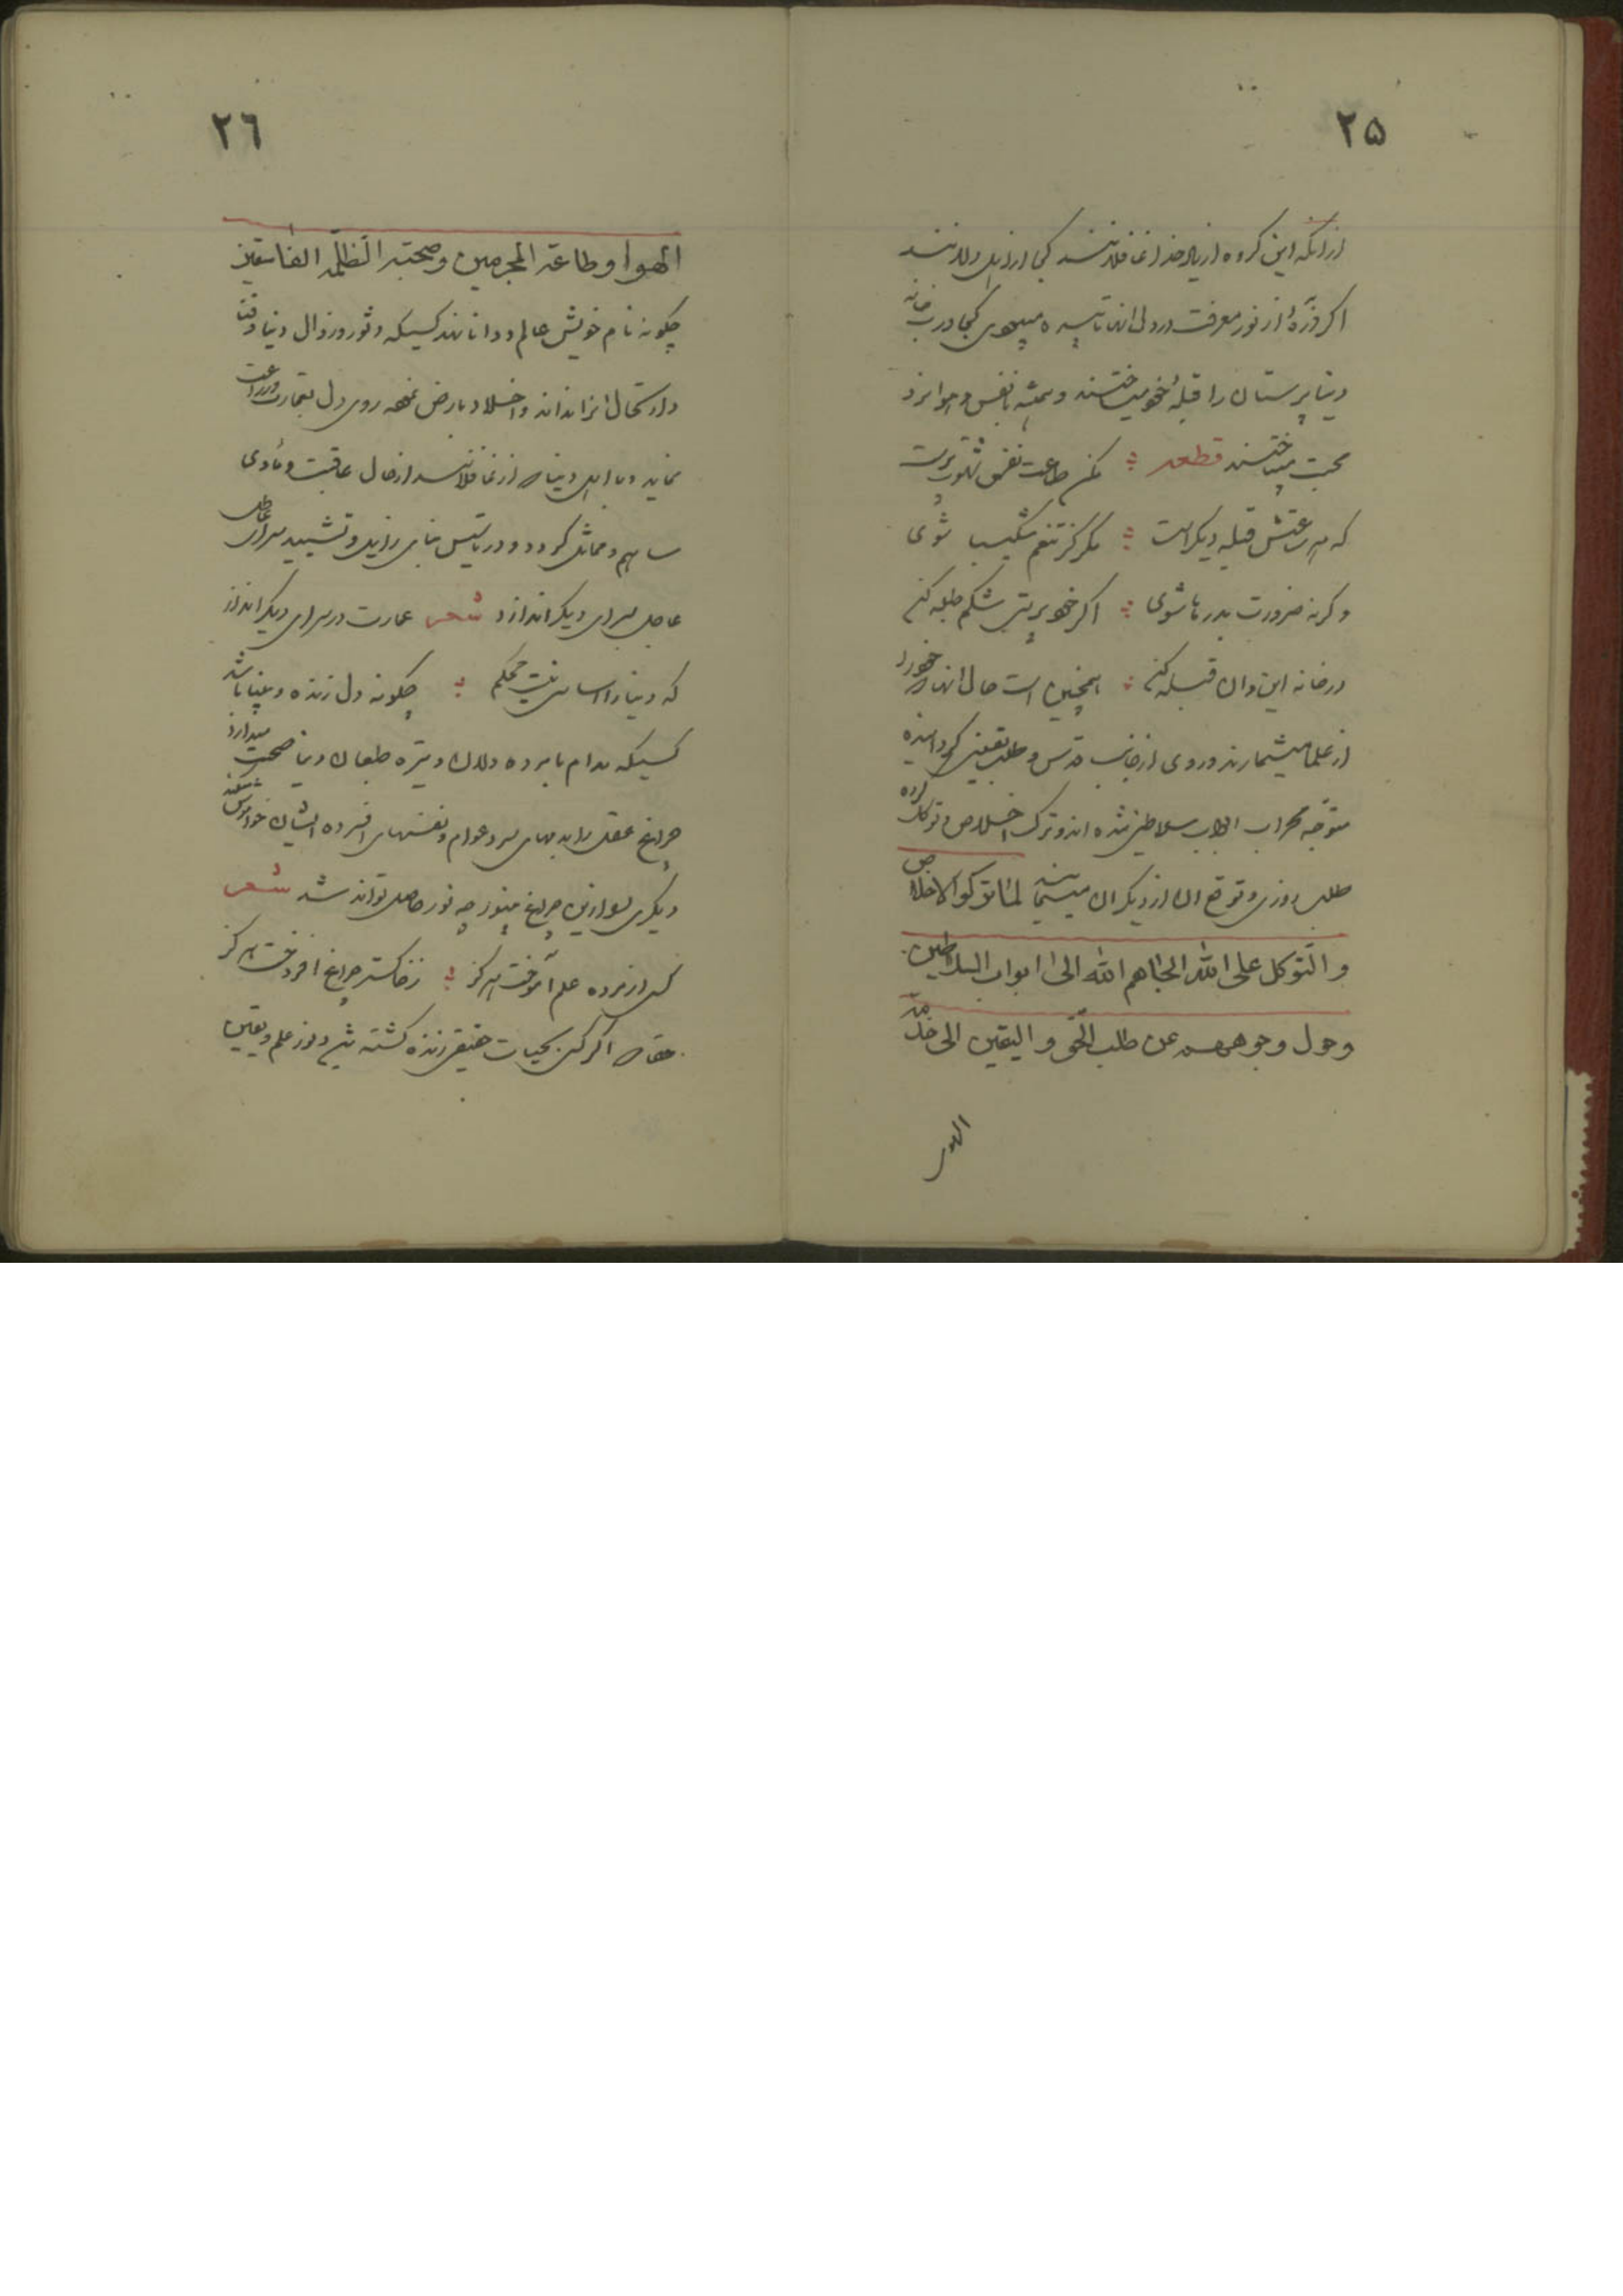 ۲۵
ازانکه این کروه از یاد خدا غافلانند کی از اهل دلانند
اکر ذرهٔ از نور معرفت در دل انها تابیده میبودی کی درب خانه
دنیا پرستان را قبلهٔ خود میساختند و همیشه با نفس و هوا نرد
محبت میباختند قطعه مکن طاعت نفس شهوت پرست
که هر ساعتش قبله دیکر است مکر کز تنعم شکیبا شوی
وکرنه ضرورت بدرها شوی اکر خود پرستی شکم طبله کن
در خانه این و ان قبله کن همچنین است حال انها که خود را
از علما میشمارند و روی از جانب قدس و طلب یقین کردانیده
متوجه محراب ابواب سلاطین شده اند و ترک اخلاص و توکل کرده
طلب روزی و توقع ان از دیکران مینمایند لما ترکوا الاخلاص
و التوکل علی الله الجاهم الله الی ابواب السلاطین
وحول وجوههم عن طلب الحق و الیقین الی خدمة
الهوی
۲٦
الهوا و طاعة المجرمین و صحبة الظلمة الفاسقین
چکونه نام خویش عالم و دانا نهد کسیکه دثور و زوال دنیا و فنا
و ارتحال انرا نداند و اخلاد بارض نموده روی دل بتجارت و زراعت
نماید و با اهل دنیا از غافلانند از حال عاقبت و مأوی
ساهم و مماثل کردد و در تاسیس بنای زایل و تشیید سرای عاطل
عاجل سرای دیکر اندازد شعر عمارت در سرای دیکر انداز
که دنیا را اساس نیست محکم چکونه دل زنده و بینا باشد
کسیکه مدام با مرده دلان و تیره طبعان دنیا صحبت میدارد
چراغ عقل را بدمهای سرد عوام و نفسهای افسرده ایشان خواموش میکند
دیکری را از این چراغ بینور چه نور حاصل تواند شد شعر
کس از مرده علم آموخت هرکز ز خاکستر چراغ افروخت هرکز
حقا که اکر کس بحیات حقیقی زنده کشته و نور علم و یقین